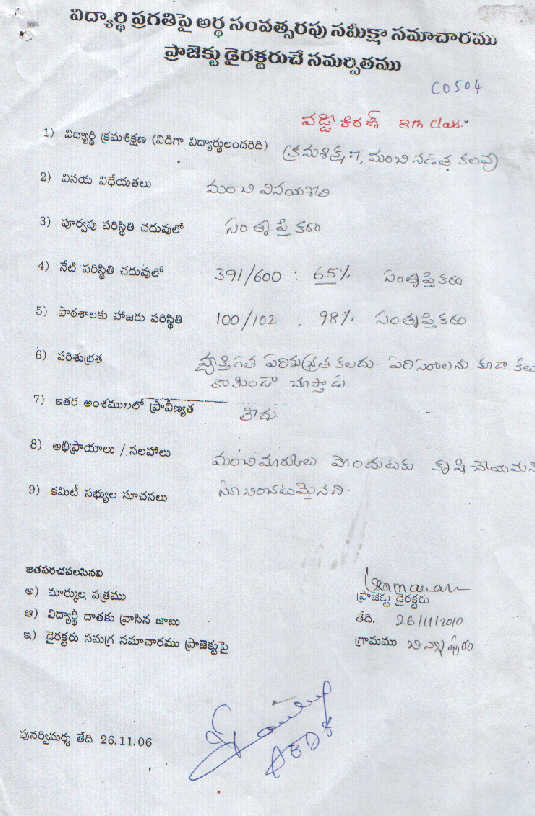 విద్యార్థి ప్రగతిపై అర్థ సంవత్సరపు సమీక్షా సమాచారము
ప్రాజెక్టు డైరక్టరుచే సమర్పితము
C0504
వడ్డి కిరణ్ 8th class
1) విద్యార్థి క్రమశిక్షణ (విడిగా విద్యార్థులందరిది) క్రమశిక్షణ, మంచి నడత కలవు
2) వినయ విధేయతలు మంచి వినయశాలి
3) పూర్వపు పరిస్థితి చదువులో సంతృప్తికరం
4) నేటి పరిస్థితి చదువులో 391/600 : 65% సంతృప్తికరం
5) పాఠశాలకు హాజరు పరిస్థితి 100/102 . 98% సంతృప్తికరం
6) పరిశుభ్రత వ్యక్తిగత పరిశుభ్రత కలదు పరిసరాలను కూడా
చూస్తాడు
7) ఇతర అంశములలో ప్రావీణ్యత లేదు
8) అభిప్రాయాలు / సలహాలు మంచి మార్కులు పొందుటకు కృషి చేయమని
9) కమిటీ సభ్యుల సూచనలు సూచించటమైనది.
జతపరచవలసినవి
అ) మార్కుల పత్రము
ప్రాజెక్టు డైరక్టరు
ఆ) విద్యార్థి దాతకు వ్రాసిన జాబు
తేది. 26/11/2010
ఇ) డైరక్టరు సమగ్ర సమాచారము ప్రాజెక్టుపై
గ్రామము
పునర్విమర్శ తేది 26.11.06